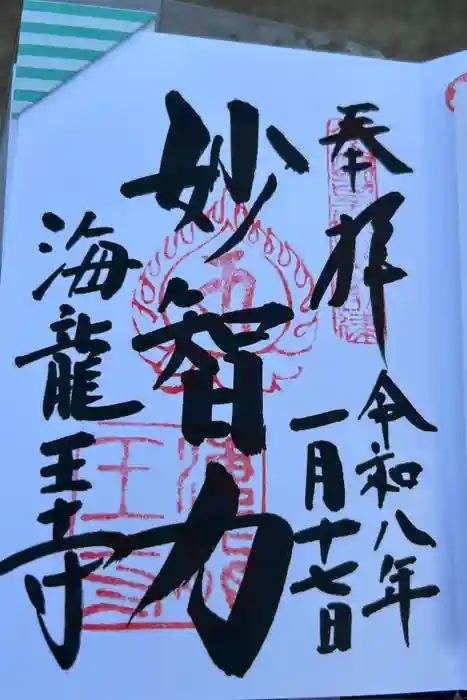 奉拝
令和八年
一月十七日
妙智力
海龍王寺